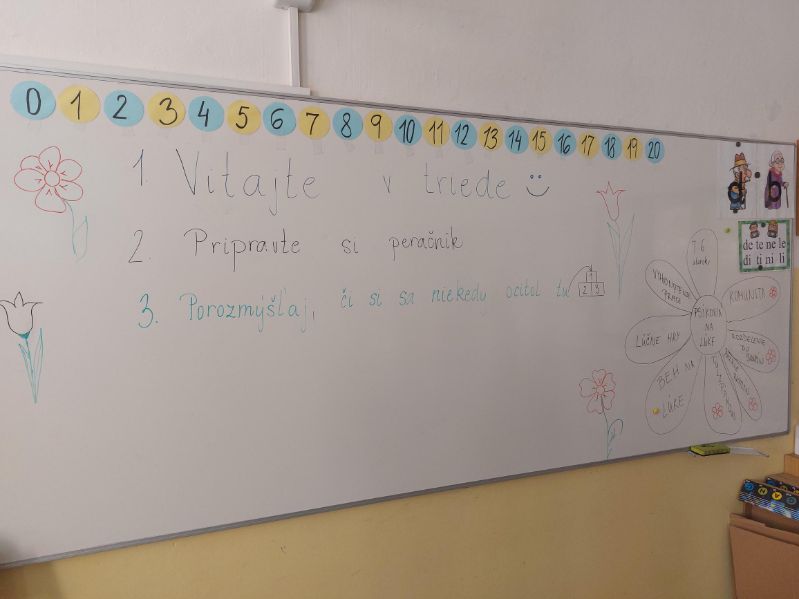 0 1 2 3 4 5 6 7 8 9 10 11 12 13 14 15 16 17 18 19 20
1. Vitajte v triede
2. Pripravte si peračník
3. Porozmýšľaj, či si sa niekedy ocitol tu
1
2 3
de te ne le
di ti ni li
PSÍKOVIA
NA
LÚKE
KOMUNITA
ROZDELENIE
DO
LÚČNE HRY
BEH NA
LÚKE